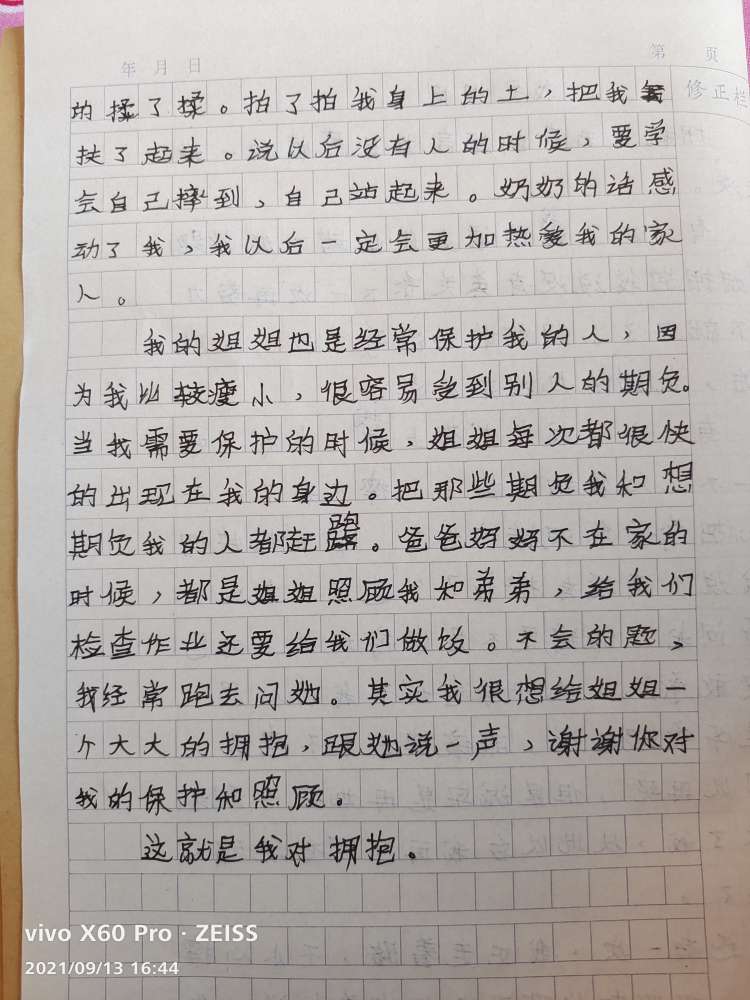 年 月 日
第 页
修正栏
的揉了揉。拍了拍我身上的土，把我
扶了起来。说以后没有人的时候，要学
会自己摔到，自己站起来。奶奶的话感
动了我，我以后一定会更加热爱我的家
人。
我的姐姐也是经常保护我的人，因
为我比较瘦小，很容易受到别人的期负。
当我需要保护的时候，姐姐每次都很快
的出现在我的身边。把那些期负我和想
期负我的人都赶跑。爸爸妈妈不在家的
时候，都是姐姐照顾我和弟弟，给我们
检查作业还要给我们做饭。不会的题，
我经常跑去问她。其实我很想给姐姐一
个大大的拥抱，跟她说一声，谢谢你对
我的保护和照顾。
这就是我对拥抱。
vivo X60 Pro · ZEISS
2021/09/13 16:44